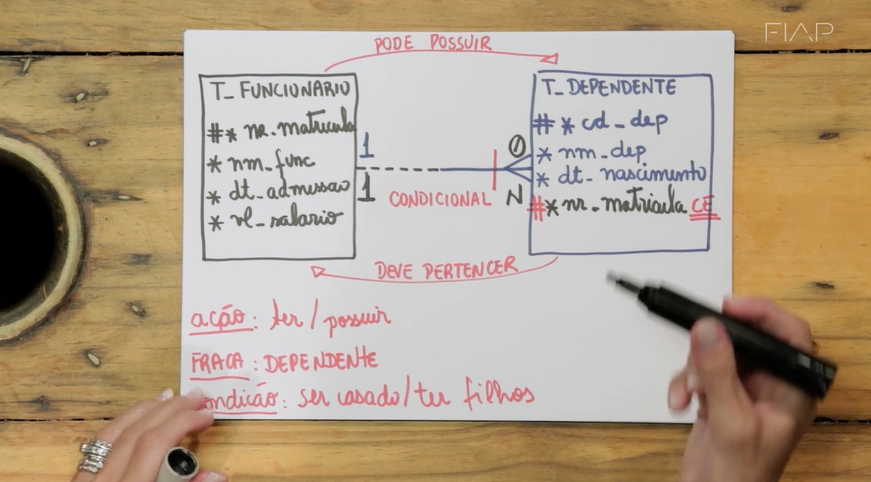 FIAP
PODE POSSUIR
T_FUNCIONARIO
#* nr_matricula
* nm_func
* dt_admessao
* vl_salario
1
1
CONDICIONAL
0
N
T_DEPENDENTE
# * cd_dep
* nm_dep
* dt_nascimento
#* nr_matricula CE
DEVE PERTENCER
ação: ter / possuir
FRACA: DEPENDENTE
ondição: ser casado/ter filhos